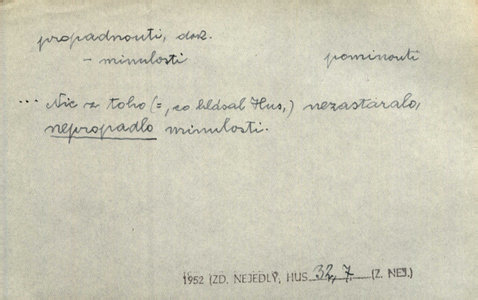 propadnouti, dok.
– minulosti pominouti
... Nic z toho (=, co hlásal Hus,) nezastaralo,
nepropadlo minulosti.
1952 (ZD. NEJEDLÝ, HUS 32, 7 (Z. NEJ.)